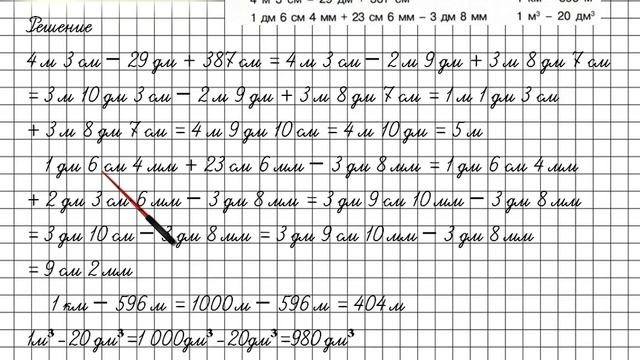 1 дм 6 см 4 мм + 23 см 6 мм – 3 дм 8 мм 1 м³ – 20 дм³
Решение
4 м 3 см – 29 дм + 387 см = 4 м 3 см – 2 м 9 дм + 3 м 8 дм 7 см
= 3 м 10 дм 3 см – 2 м 9 дм + 3 м 8 дм 7 см = 1 м 1 дм 3 см
+ 3 м 8 дм 7 см = 4 м 9 дм 10 см = 4 м 10 дм = 5 м
1 дм 6 см 4 мм + 23 см 6 мм – 3 дм 8 мм = 1 дм 6 см 4 мм
+ 2 дм 3 см 6 мм – 3 дм 8 мм = 3 дм 9 см 10 мм – 3 дм 8 мм
= 3 дм 10 см – 3 дм 8 мм = 3 дм 9 см 10 мм – 3 дм 8 мм
= 9 см 2 мм
1 км – 596 м = 1000 м – 596 м = 404 м
1м³ – 20 дм³ = 1 000дм³ – 20дм³ = 980 дм³